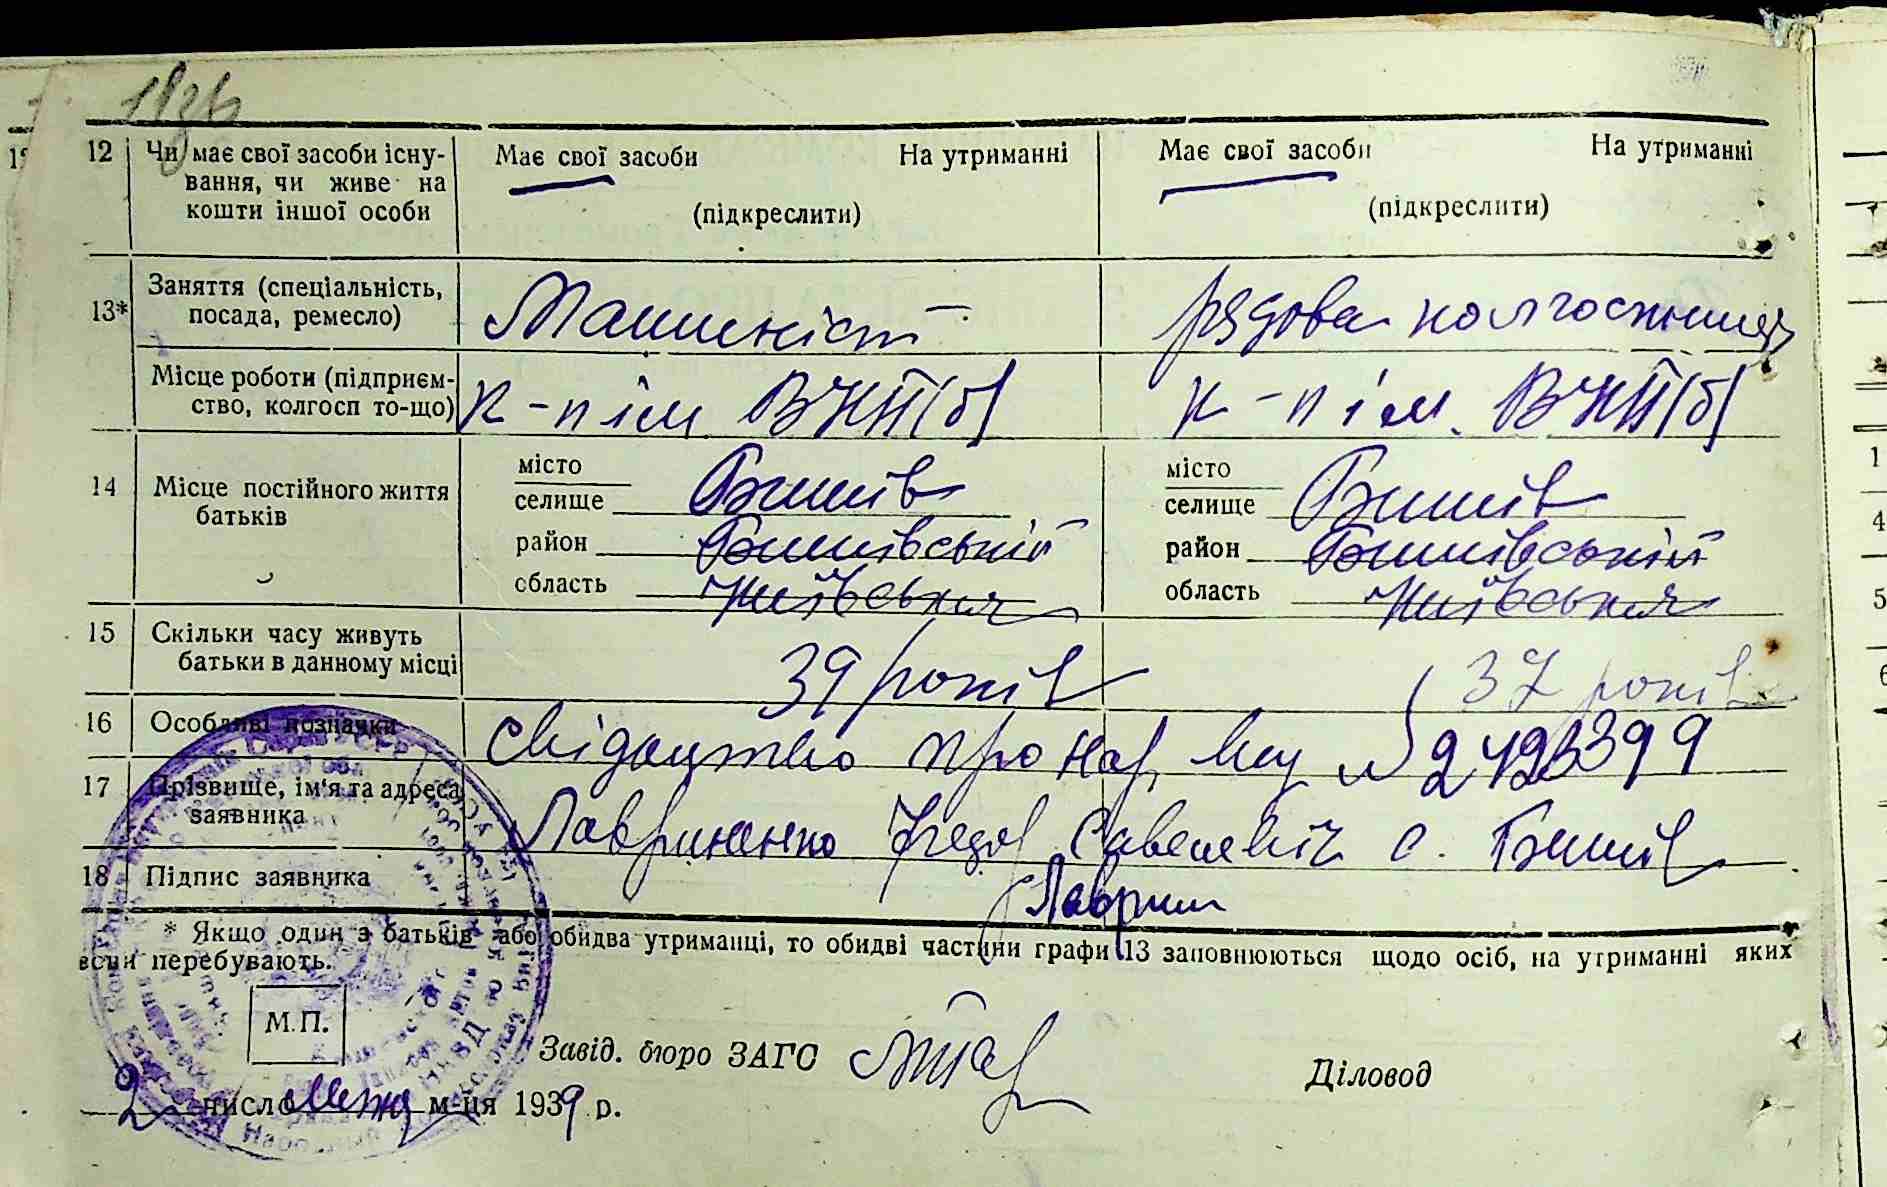 12 Чи має свої засоби існу- Має свої засоби На утриманні Має свої засоби На утриманні
вання, чи живе на
кошти іншої особи (підкреслити) (підкреслити)
13* Заняття (спеціальність, посада, ремесло) Машиніст рядова колгоспниця
Місце роботи (підприєм-
ство, колгосп то-що) к-п ім ВКП(б) к-п ім. ВКП(б)
14 Місце постійного життя
батьків
місто місто
селище Бишів селище Бишів
район Бишівський район Бишівський
область Київська область Київська
15 Скільки часу живуть
батьки в данному місці 39 років 37 років
16 Особливі позначки свідоцтво про нар. №
17 Прізвище, ім'я та адреса
заявника Лавриненко Федор Савелевіч с. Бишів
18 Підпис заявника Лаврин
* Якщо один з батьків або обидва утриманці, то обидві частини графи 13 заповнюються щодо осіб, на утриманні яких
вони перебувають.
М.П.
Завід. бюро ЗАГС Діловод
2 число м-ця 1939 р.